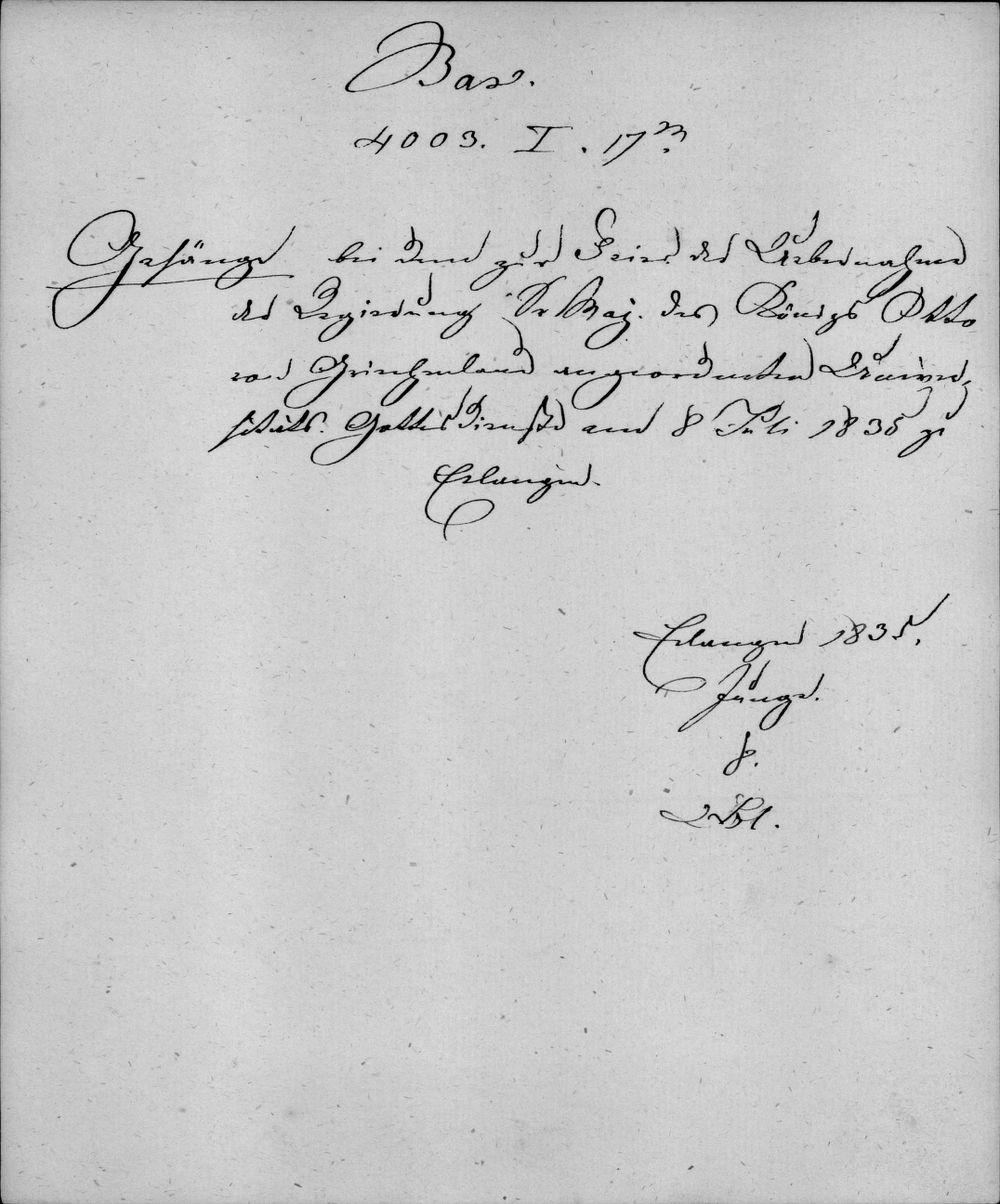 Bav.
4003. I. 17m.
Gesänge bei dem zur Feier der Uebernahme
der Regierung Sr Maj. des Königs Otto
von Griechenland angeordneten Univer-
sitäts-Gottesdienste am 8 Juli 1835 zu
Erlangen.
Erlangen 1835.
Junge.
8.
2 Bl.